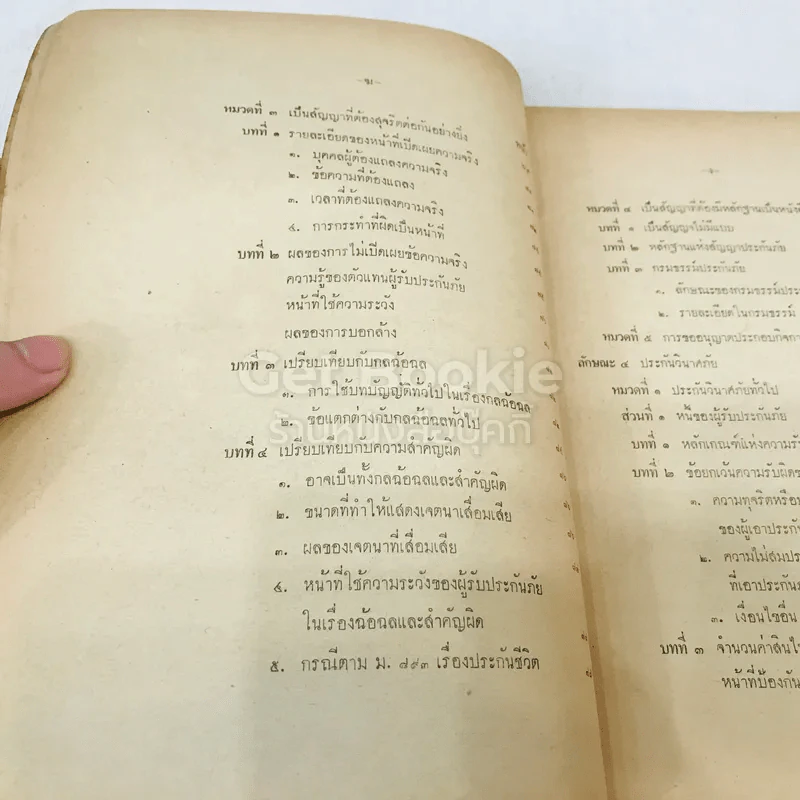 -ฆ-
หมวดที่ ๓ เป็นสัญญาที่ต้องสุจริตต่อกันอย่างยิ่ง
บทที่ ๑ รายละเอียดของหน้าที่เปิดเผยความจริง
๑. บุคคลผู้ต้องแถลงความจริง
๒. ข้อความที่ต้องแถลง
๓. เวลาที่ต้องแถลงความจริง
๔. การกระทำที่ผิดเป็นหน้าที่
บทที่ ๒ ผลของการไม่เปิดเผยข้อความจริง
ความรู้ของตัวแทนผู้รับประกันภัย
หน้าที่ใช้ความระวัง
ผลของการบอกล้าง
บทที่ ๓ เปรียบเทียบกับกลฉ้อฉล
๑. การใช้บทบัญญัติทั่วไปในเรื่องกลฉ้อฉล
๒. ข้อแตกต่างกับกลฉ้อฉลทั่วไป
บทที่ ๔ เปรียบเทียบกับความสำคัญผิด
๑. อาจเป็นทั้งกลฉ้อฉลและสำคัญผิด
๒. ขนาดที่ทำให้แสดงเจตนาเสื่อมเสีย
๓. ผลของเจตนาที่เสื่อมเสีย
๔. หน้าที่ใช้ความระวังของผู้รับประกันภัย
ในเรื่องฉ้อฉลและสำคัญผิด
๕. กรณีตาม ม. ๗๙๓ เรื่องประกันชีวิต
หมวดที่ ๔ เป็นสัญญาที่ต้องมีหลักฐานเป็นหนังสื
บทที่ ๑ เป็นสัญญาไม่มีแบบ
บทที่ ๒ หลักฐานแห่งสัญญาประกันภัย
บทที่ ๓ กรมธรรม์ประกันภัย
๑. ลักษณะของกรมธรรม์ประ
๒. รายละเอียดในกรมธรรม์
หมวดที่ ๕ การขออนุญาตประกอบกิจกา
ลักษณะ ๔ ประกันวินาศภัย
หมวดที่ ๑ ประกันวินาศภัยทั่วไป
ส่วนที่ ๑ หนี้ของผู้รับประกันภัย
บทที่ ๑ หลักเกณฑ์แห่งความรับ
บทที่ ๒ ข้อยกเว้นความรับผิดข
๑. ความทุจริตหรือ
ของผู้เอาประกัน
๒. ความไม่สมประ
ที่เอาประกัน
๓. เงื่อนไขอื่น
บทที่ ๓ จำนวนค่าสินไ
หน้าที่ป้องกัน
Get Bookie
ร้านหนังสือบุคกี้